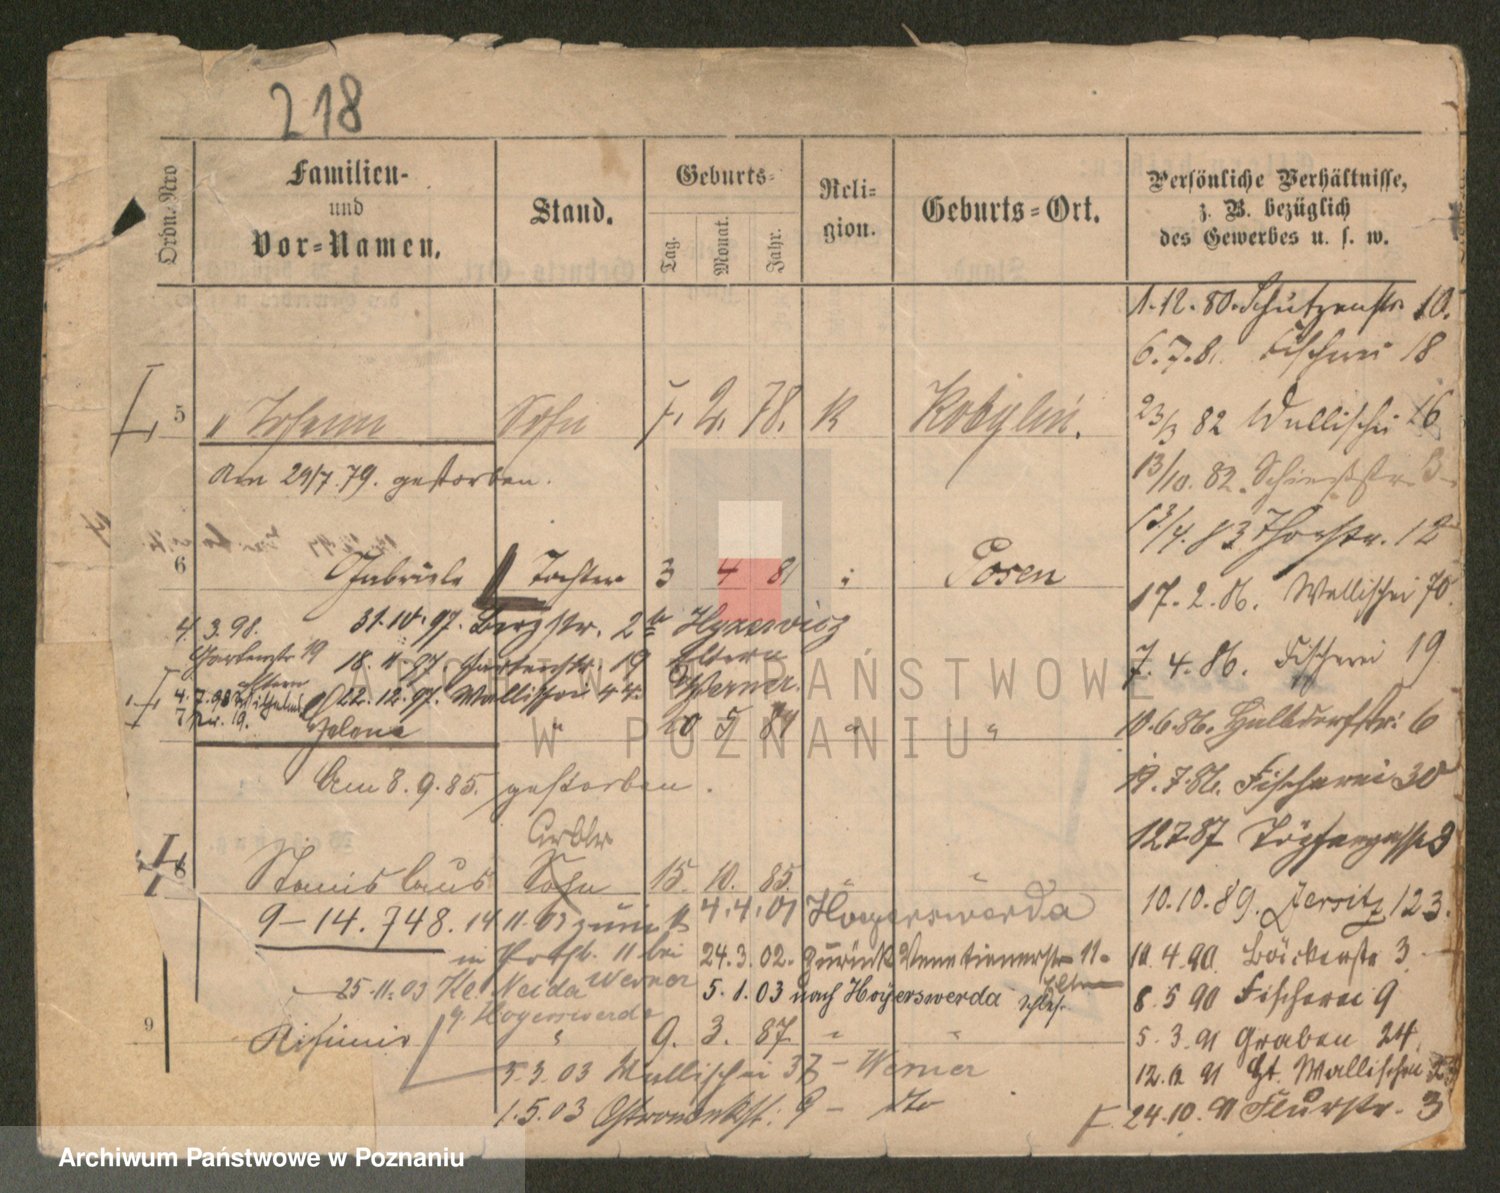 218
Ordn.-Nro
Familien-
und
Vor-Namen.
Stand.
Geburts-
Tag.
Monat.
Jahr.
Reli-
gion.
Geburts-Ort.
Persönliche Verhältnisse,
z. B. bezüglich
des Gewerbes u. s. w.
1.12.80. Schützenstr. 10.
6.7.81 Fischerei 18
5 " Johann Sohn 7. 2. 78. K Kobylin.
23/3 82 Wallischei 16
Am 29/7.79. gestorben.
13/10.82. Schiessstr. 3
13/4.83 Thorstr. 12
6 Gabriele Tochter 3 4 81 " Posen
17.2.86. Wallischei 70
4.3.98. 31.10.97. Bergstr. 2
Gartenstr 19 18.11.97 Gartenstr. 19 Eltern
7.4.86. Fischerei 19
4.7.98 22.12.97. Wallischei 44. Werner.
7 Helena " 20 5 84 " "
10.6.86. Halbdorfstr. 6
Am 8.9.85. gestorben.
19.7.86. Fischerei 30
12.7.87 Töpfergasse 3
8 Stanislaus Sohn 15. 10. 85. " "
10.10.89. Jersitz 123.
9-14.748. 14.11.03 4.4.01 Hoyerswerda
in 11 bei 24.3.02. zurück Venetianerstr 11.
10.4.90. Bäckerstr 3
25.11.03 Kl. Neida Werner 5.1.03 nach Hoyerswerda Schles.
8.5.90 Fischerei 9
b. Hoyerswerda
9 Kasimir " 9. 3. 87. " "
5.3.91 Graben 24
3.3.03 Wallischei 37 - Werner
12.12.91 Wallischei
1.5.03 Ostrowekstr. 9 - dto
24.10.91 Flurstr. 3
ARCHIWUM PAŃSTWOWE
W POZNANIU
Archiwum Państwowe w Poznaniu